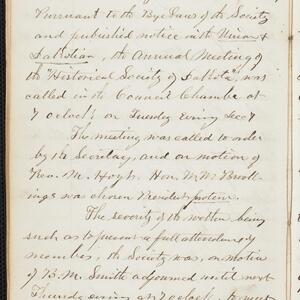 Pursuant to the Bye Laws of the Society
and published notice with Union &
Dakotian, the Annual Meeting of
the "Historical Society of Dakota" was
called in the Council Chamber at
7 oclock, on Tuesday Evening Dec 7
The meeting was called to order
by the Secretary, and on motion of
Rev. M. Hoyt. Hon. W. W. Brook-
ings was chosen President protem.
The severity of the weather being
such as to prevent a full attendance of
members, the Society was, on motion
of B. M. Smith adjourned until next
Thursday evening at 7 oclock